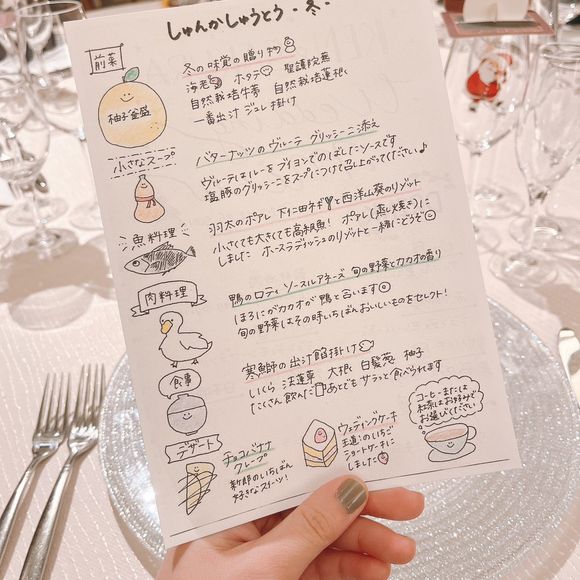 しゅんかしゅうとう・冬・
前菜
冬の味覚の贈り物
海老 ホタテ 聖護院蕪
自然栽培牛蒡 自然栽培蓮根
一番出汁ジュレ掛け
柚子釜盛
小さなスープ
バターナッツのヴルーテ グリッシーニ添え
ヴルーテはルーをブイヨンでのばしたソースです
塩豚のグリッシーニをスープにつけて召し上がってください♪
魚料理
羽太のポアレ 下仁田ネギと西洋山葵のリゾット
小さくても大きくても高級魚! ポアレ(蒸し焼き)に
しました ホースラディッシュのリゾットと一緒にどうぞ
肉料理
鴨のロティ ソースルアネーズ 旬の野菜とカカオの香り
ほろにがカカオが鴨と合います
旬の野菜はその時いちばんおいしいものをセレクト!
食事
寒鰤の出汁餡掛け
いくら 法蓮草 大根 白髪葱 柚子
たくさん飲んだあとでもサラッと食べられます
デザート
チョコバナナ
クレープ
新郎のいちばん
好きなスイーツ!
ウェディングケーキ
王道のいちご
ショートケーキに
しました
コーヒーまたは
紅茶はお好みで
お選びください